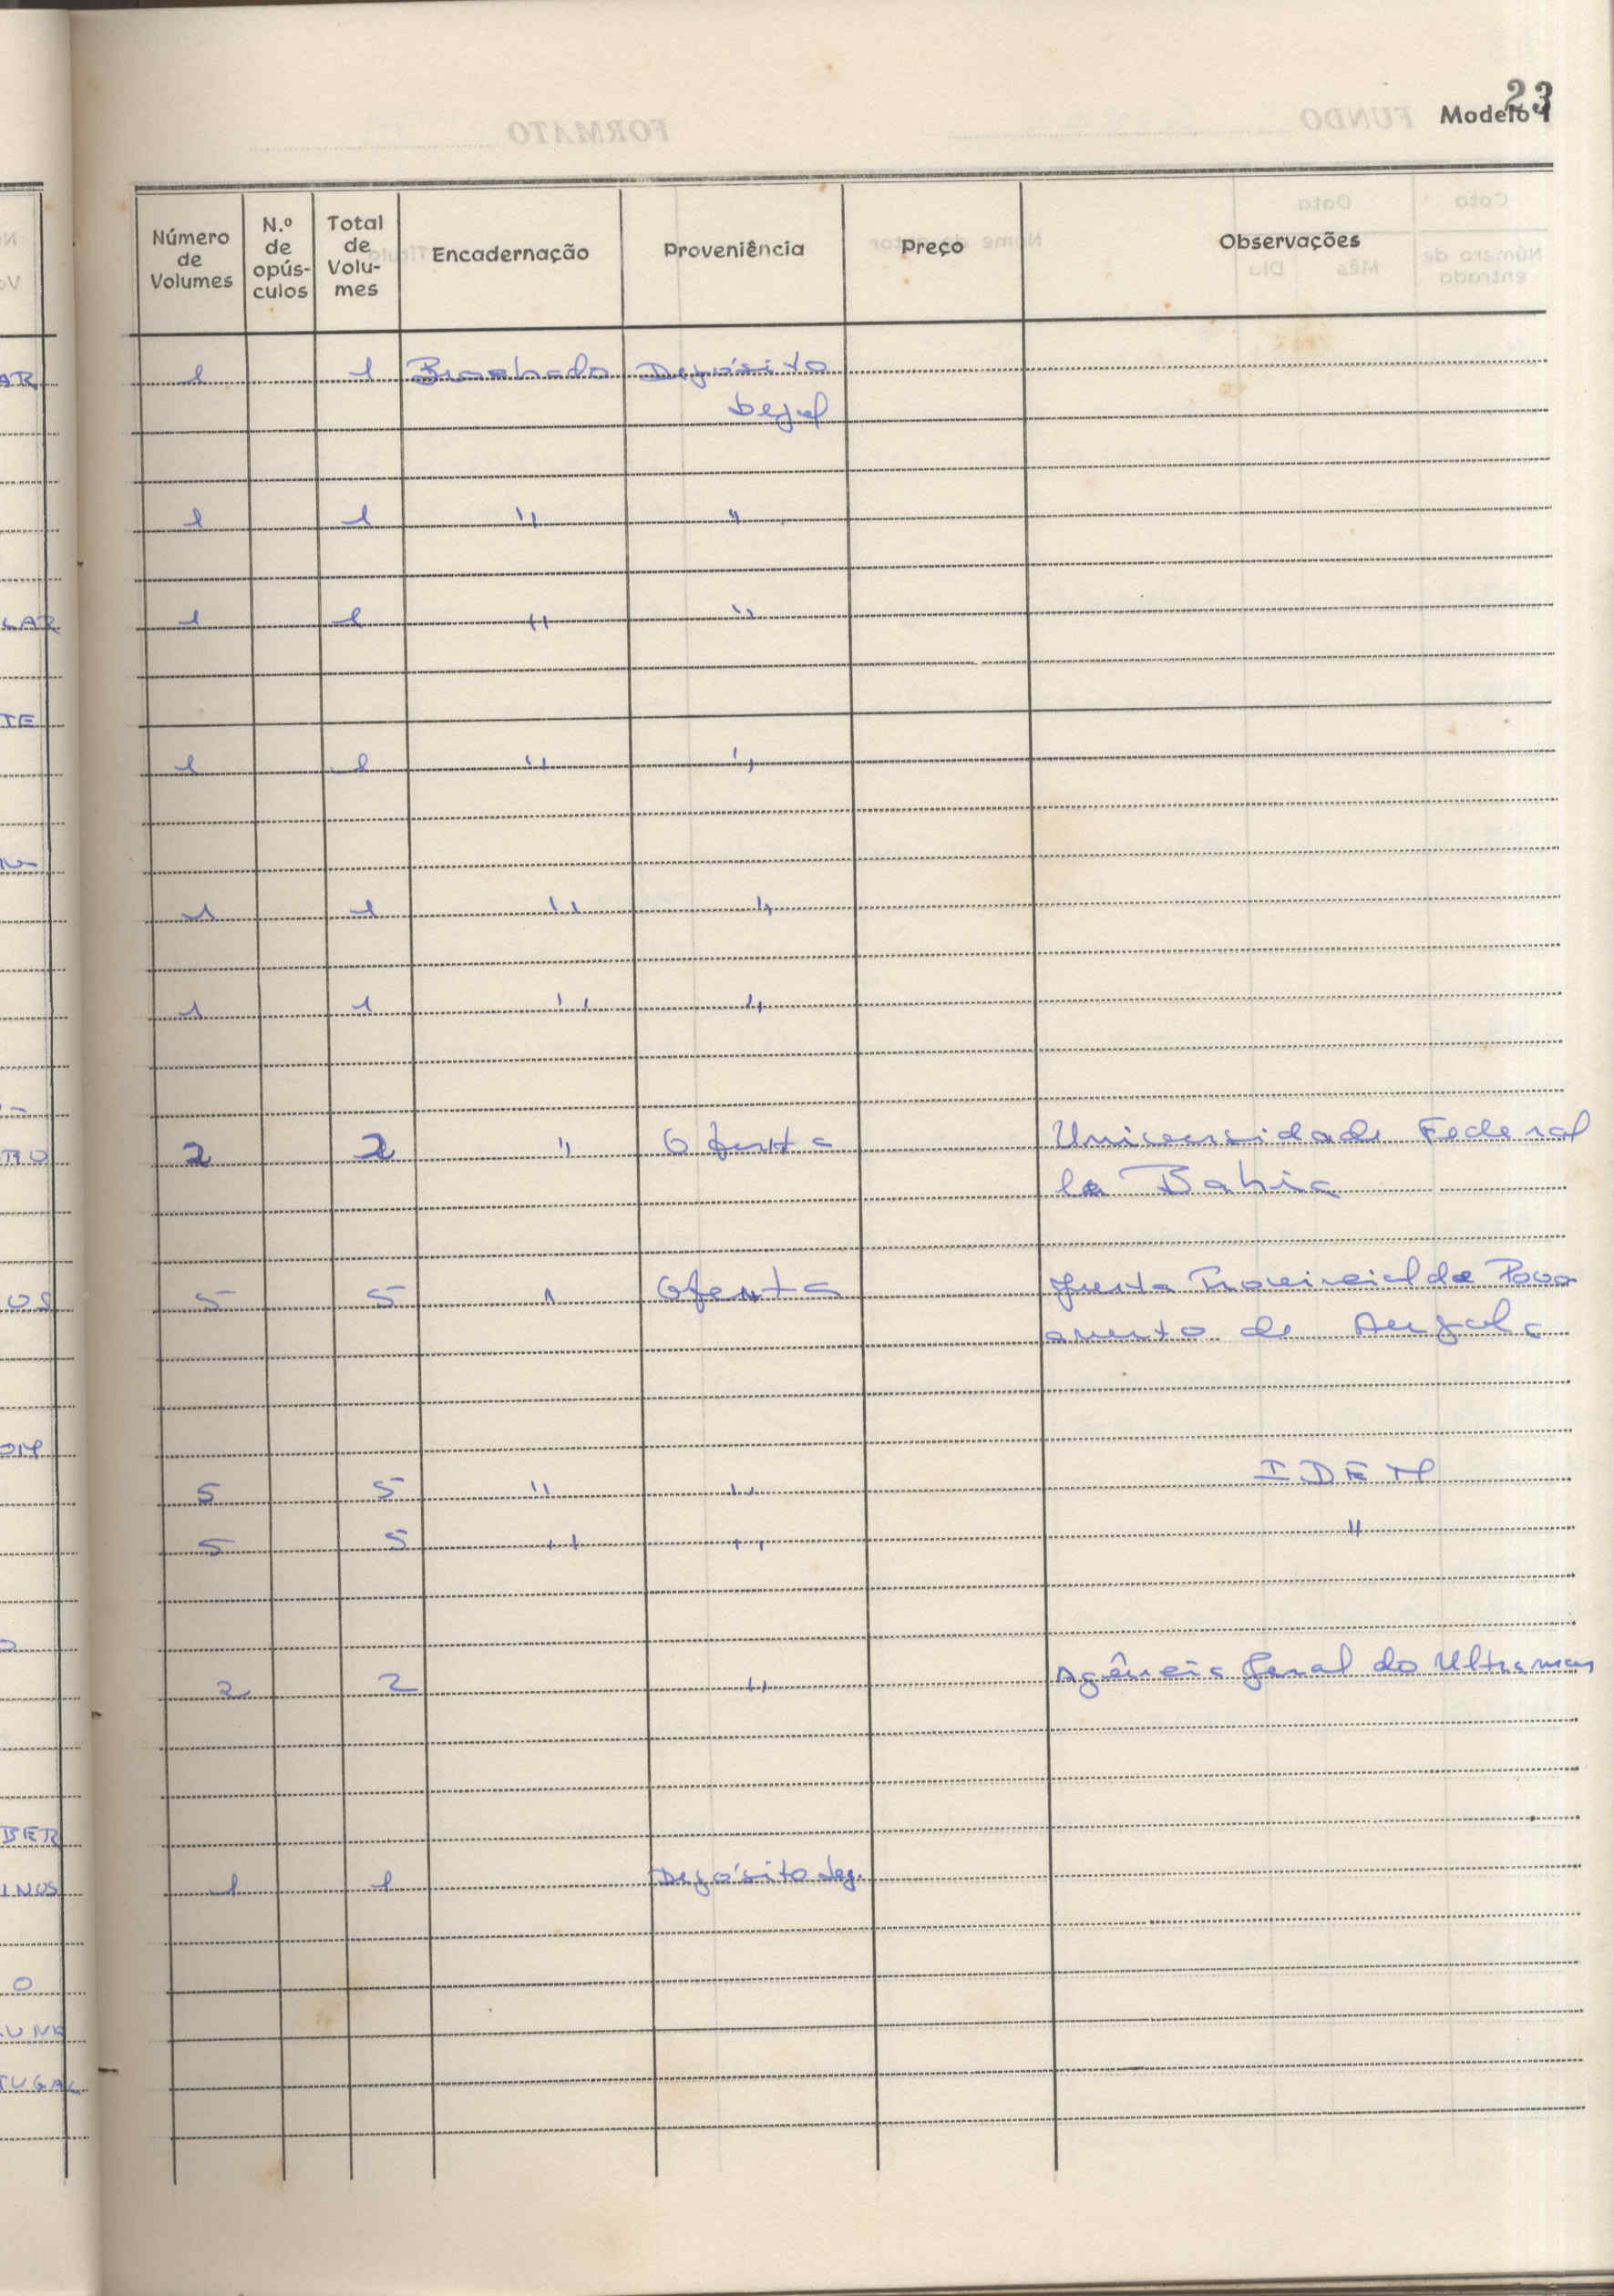 23
Modelo 1
Número de Volumes
N.º de opús-culos
Total de Volu-mes
Encadernação
Proveniência
Preço
Observações
AR
1 1 Brochado Depósito
Legal
1 1 " "
LAR 1 1 " "
TE
1 1 " "
1 1 " "
1 1 " "
RO 2 2 " Oferta Universidade Federal
la Bahia
OS 5 5 " Oferta Junta Provincial de Povoa
mento de Angola
OM
5 5 " " IDEM
5 5 " " "
2 2 " Agência Geral do Ultramar
BER
INOS 1 1 Depósito Leg.
O
UNE
TUGAL